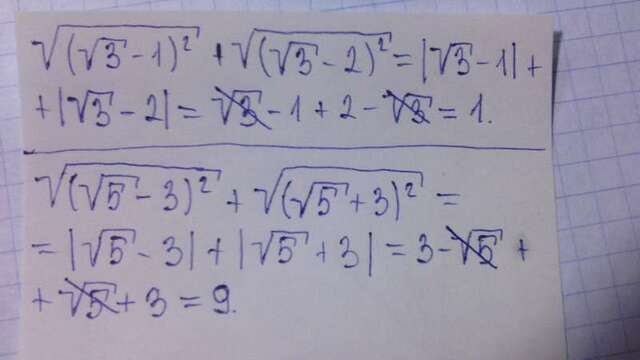 √(√3 - 1)² + √(√3 - 2)² = |√3 - 1| +
+ |√3 - 2| = √3 - 1 + 2 - √3 = 1.
√(√5 - 3)² + √(√5 + 3)² =
= |√5 - 3| + |√5 + 3| = 3 - √5 +
+ √5 + 3 = 9.